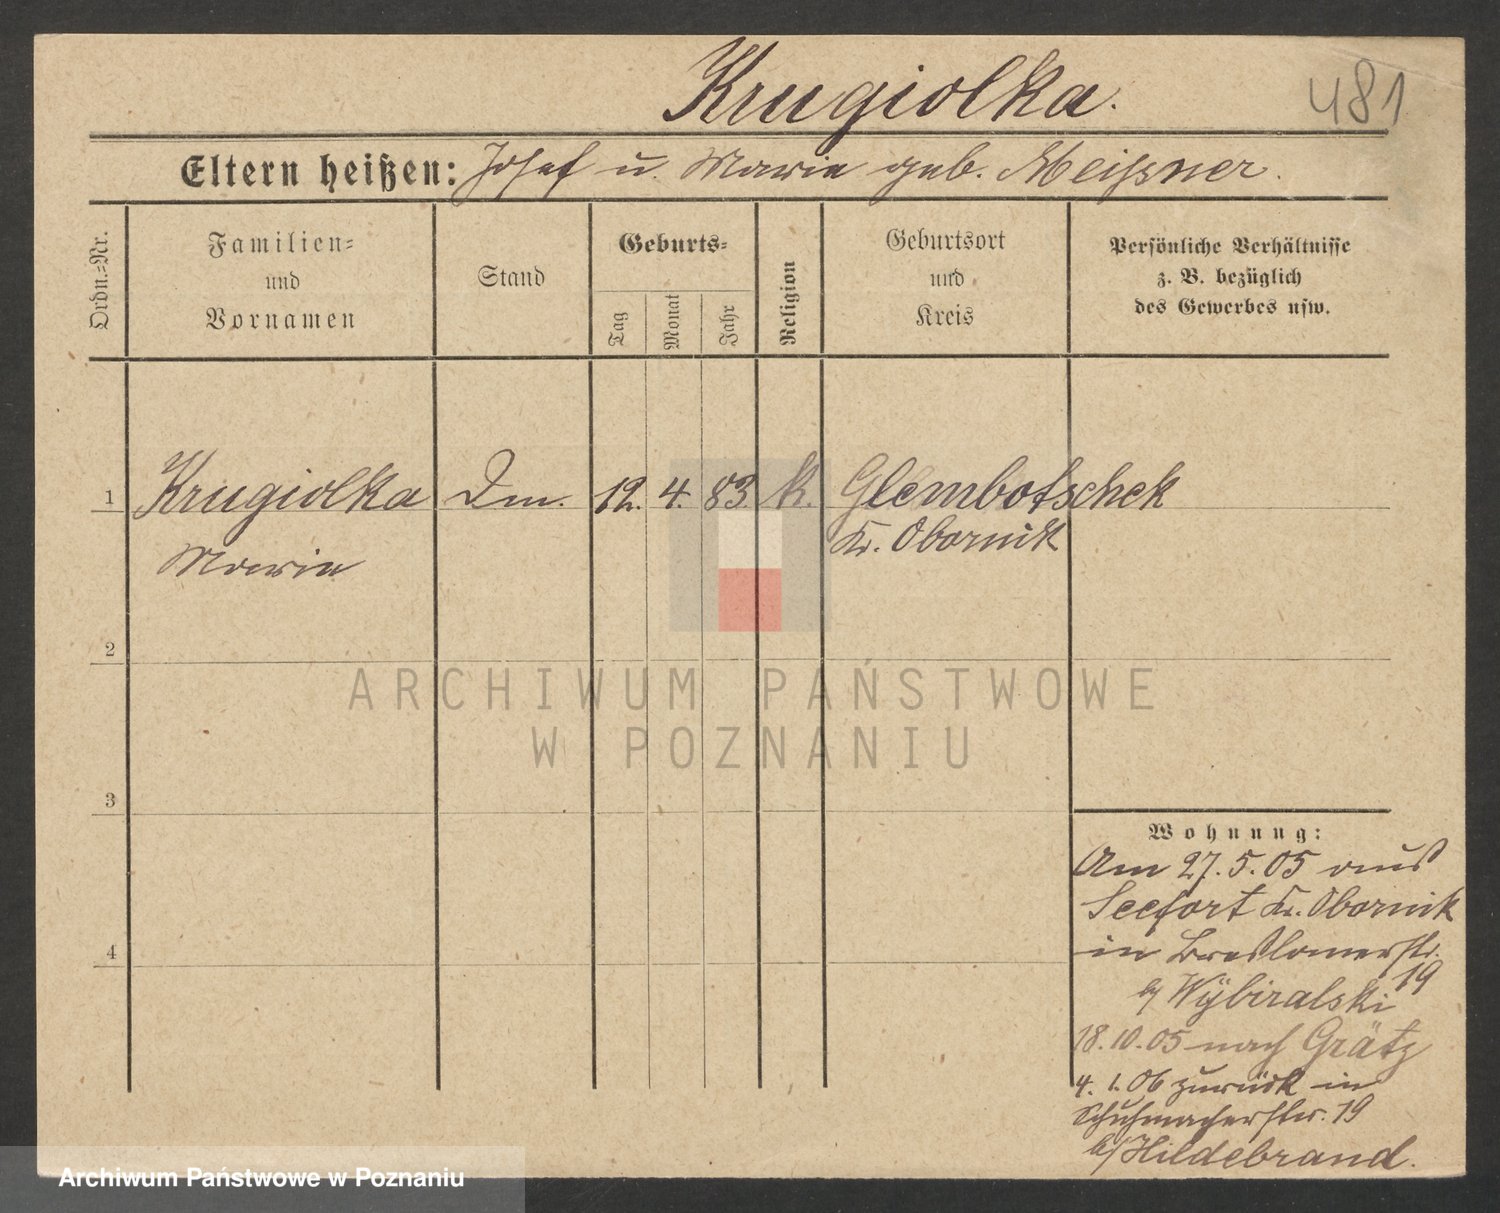 Krugiolka.
481
Eltern heißen: Josef u. Marie geb. Meißner.
Ordn.=Nr.
Familien=
und
Vornamen
Stand
Geburts=
Tag
Monat
Jahr
Religion
Geburtsort
und
Kreis
Persönliche Verhältnisse
z. B. bezüglich
des Gewerbes usw.
1 Krugiolka Dm. 12. 4. 83. k. Glembotschek
Kr. Obornik
Marie
2
ARCHIWUM PAŃSTWOWE
W POZNANIU
3
Wohnung:
Am 27.5.05 aus
Seefort Kr. Obornik
4
in Breslauerstr.
19
b/ Wÿbiralski
18.10.05 nach Grätz
4.1.06 zurück in
Schuhmacherstr. 19
b/ Hildebrand.
Archiwum Państwowe w Poznaniu